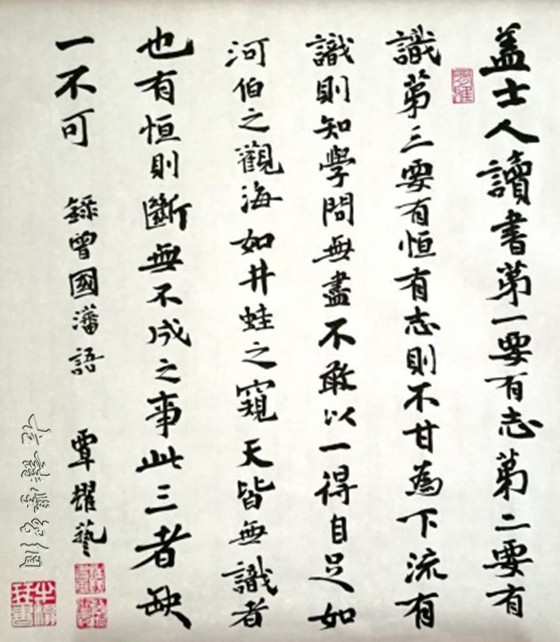 盖士人讀書第一要有志第二要有
識第三要有恒有志則不甘為下流有
識則知學問無盡不敢以一得自足如
河伯之觀海如井蛙之窺天皆無識者
也有恒則斷無不成之事此三者缺
一不可 錄曾國藩語 覃耀藝